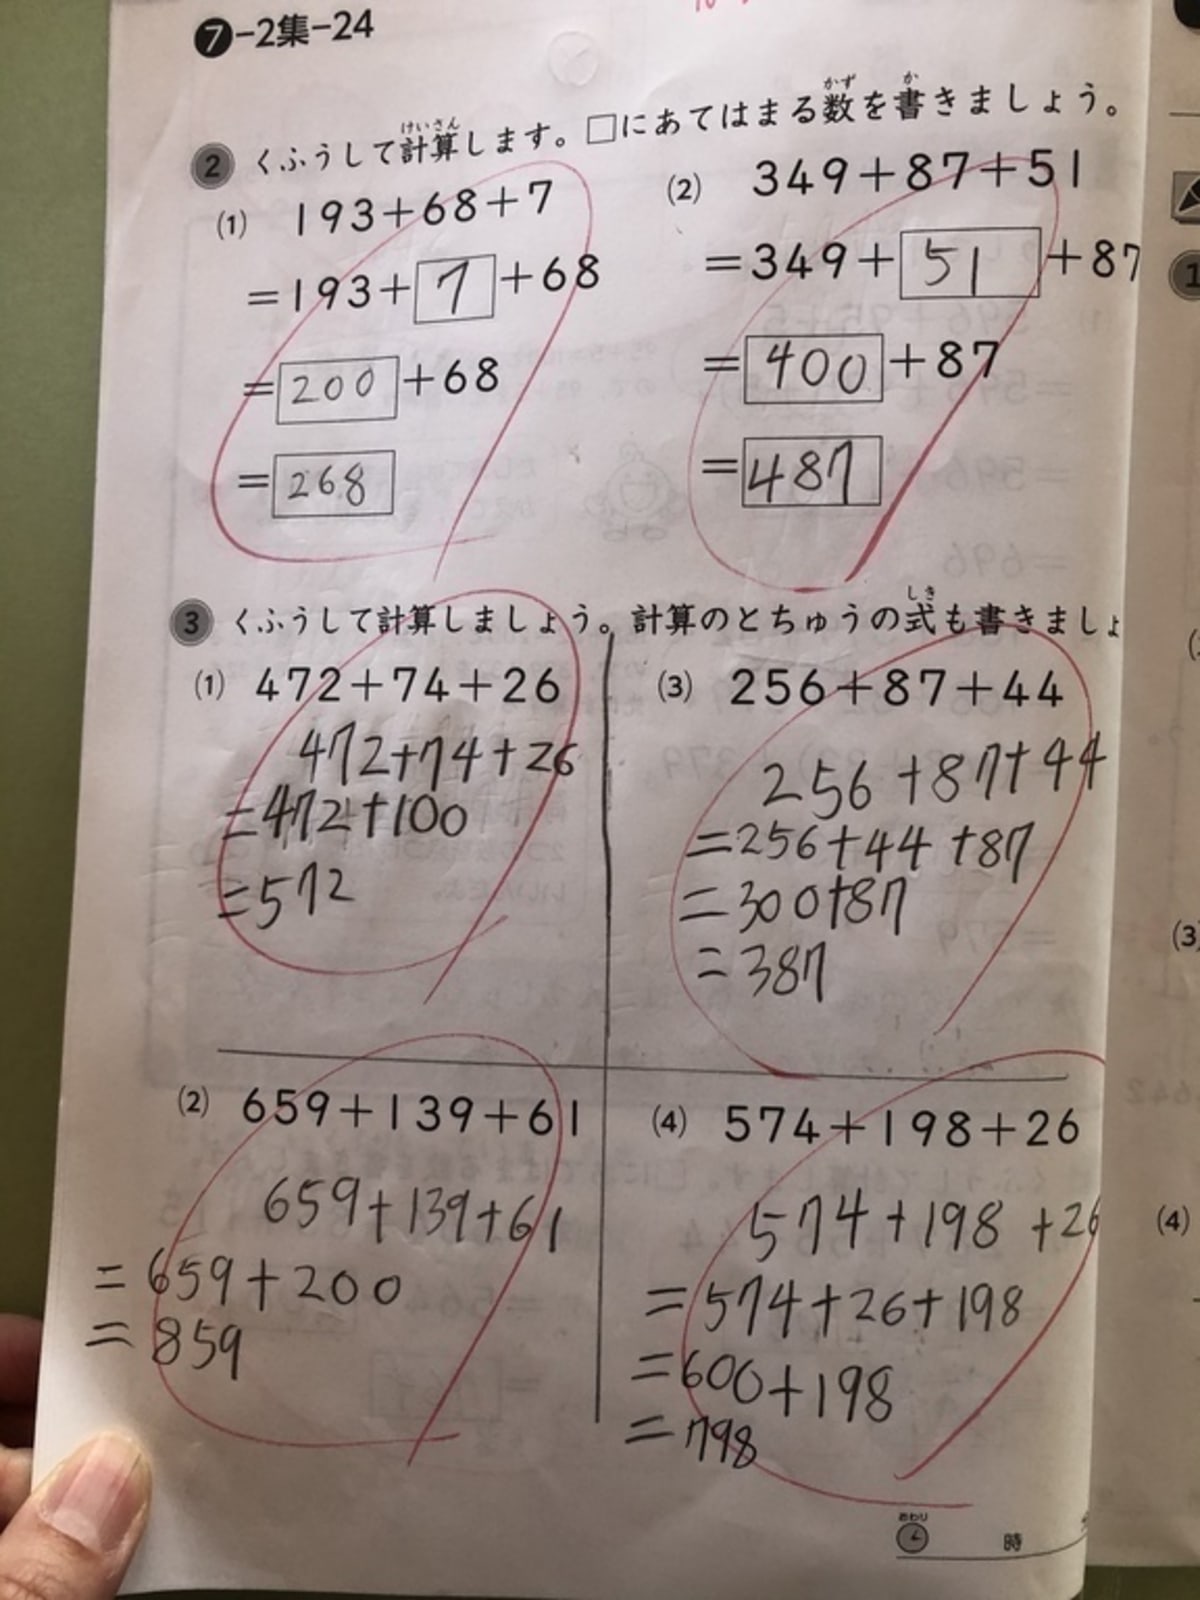 ❼-2集-24
2 くふうして計算します。□にあてはまる数を書きましょう。
けいさん かず か
(1) 193+68+7
=193+7+68
=200+68
=268
(2) 349+87+51
=349+51+87
=400+87
=487
3 くふうして計算しましょう。計算のとちゅうの式も書きましょ
しき
(1) 472+74+26
472+74+26
=472+100
=572
(3) 256+87+44
256+87+44
=256+44+87
=300+87
=387
(2) 659+139+61
659+139+61
=659+200
=859
(4) 574+198+26
574+198+26
=574+26+198
=600+198
=798
おわり
時
1
(3)
(4)